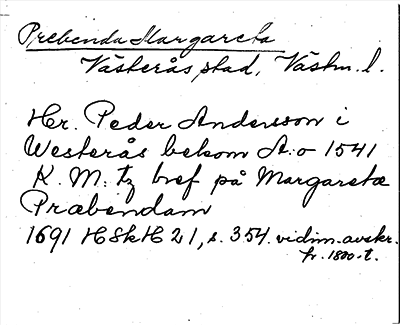 Prebenda Margareta
Västerås, stad, Västm. l.
Hr. Peder Andersson i
Westerås bekom A:o 1541
K. M:tz bref på Margaretæ
Præbendam
1691 HSkH 21, s. 354. vidim. avskr.
fr. 1800-t.